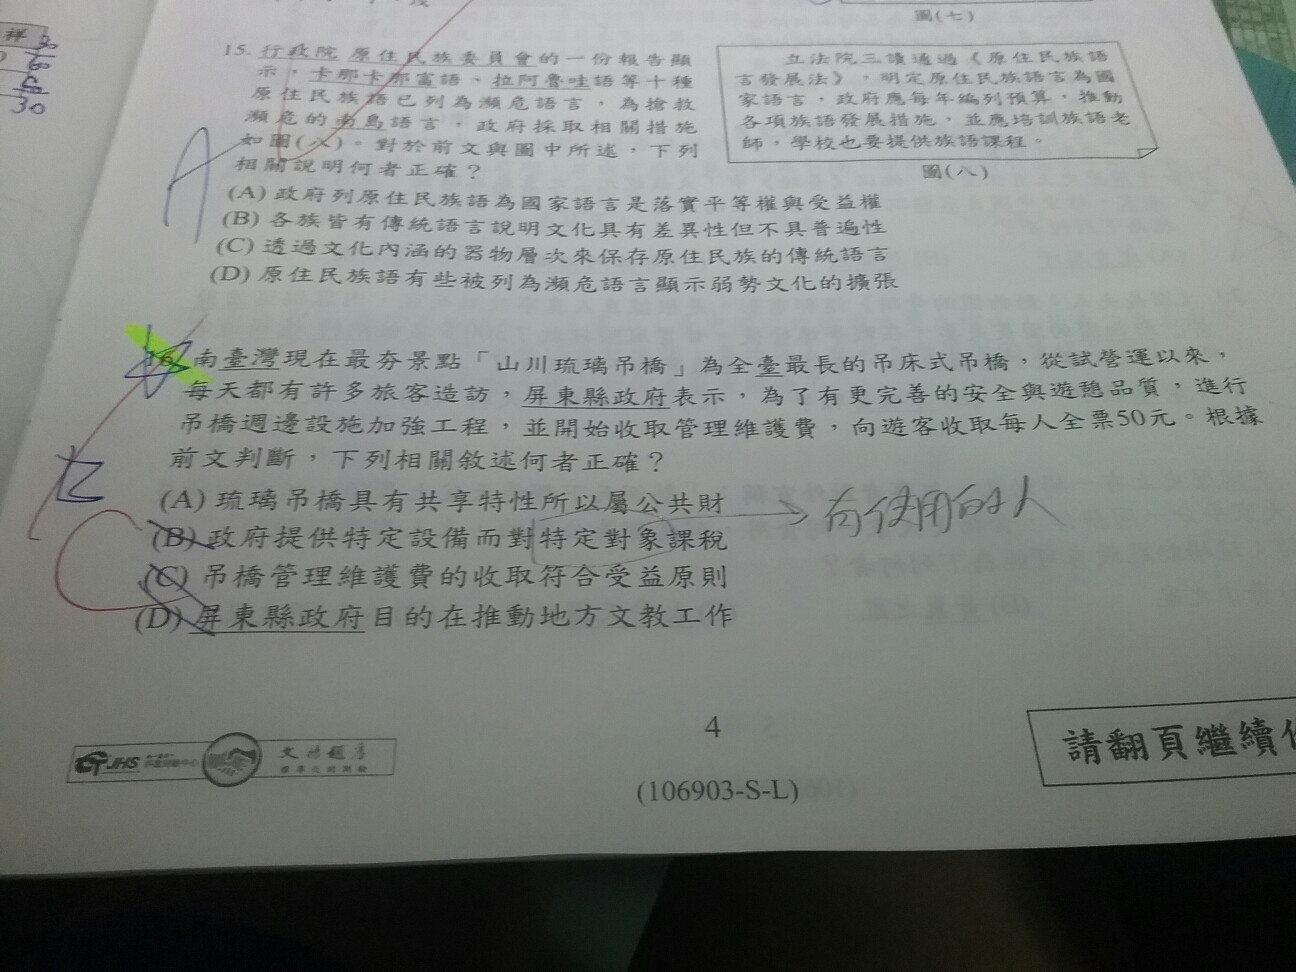 圖(七)
祥
30
15. 行政院 原住民族委員會的一份報告顯
示，卡那卡那富語、拉阿魯哇語等十種
原住民族語已列為瀕危語言，為搶救
瀕危的南島語言，政府採取相關措施
如圖(八)。對於前文與圖中所述，下列
相關說明何者正確？
立法院三讀通過《原住民族語
言發展法》，明定原住民族語言為國
家語言，政府應每年編列預算，推動
各項族語發展措施，並應培訓族語老
師，學校也要提供族語課程。
圖(八)
A
(A) 政府列原住民族語為國家語言是落實平等權與受益權
(B) 各族皆有傳統語言說明文化具有差異性但不具普遍性
(C) 透過文化內涵的器物層次來保存原住民族的傳統語言
(D) 原住民族語有些被列為瀕危語言顯示弱勢文化的擴張
16. 南臺灣現在最夯景點「山川琉璃吊橋」為全臺最長的吊床式吊橋，從試營運以來，
每天都有許多旅客造訪，屏東縣政府表示，為了有更完善的安全與遊憩品質，進行
吊橋週邊設施加強工程，並開始收取管理維護費，向遊客收取每人全票50元。根據
前文判斷，下列相關敘述何者正確？
(A) 琉璃吊橋具有共享特性所以屬公共財
(B) 政府提供特定設備而對特定對象課稅
有使用的人
(C) 吊橋管理維護費的收取符合受益原則
(D) 屏東縣政府目的在推動地方文教工作
4
JHS
(106903-S-L)
請翻頁繼續